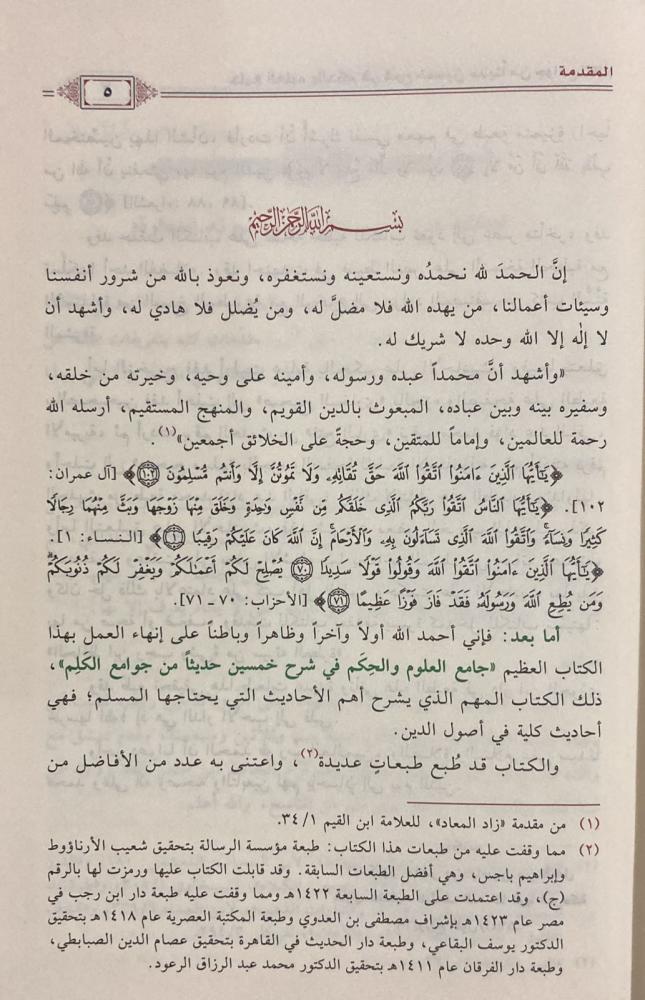 المقدمة
٥
بسم الله الرحمن الرحيم
إنَّ الحمدَ لله نحمدُه ونستعينه ونستغفره، ونعوذ بالله من شرور أنفسنا
وسيئات أعمالنا، من يهده الله فلا مضلَّ له، ومن يُضلل فلا هادي له، وأشهد أن
لا إلٰه إلا الله وحده لا شريك له.
«وأشهد أنَّ محمداً عبده ورسوله، وأمينه على وحيه، وخيرته من خلقه،
وسفيره بينه وبين عباده، المبعوث بالدين القويم، والمنهج المستقيم، أرسله الله
رحمة للعالمين، وإماماً للمتقين، وحجةً على الخلائق أجمعين»(١).
﴿يَٰٓأَيُّهَا ٱلَّذِينَ ءَامَنُوا۟ ٱتَّقُوا۟ ٱللَّهَ حَقَّ تُقَاتِهِۦ وَلَا تَمُوتُنَّ إِلَّا وَأَنتُم مُّسْلِمُونَ ١٠٢﴾ [آل عمران:
١٠٢]. ﴿يَٰٓأَيُّهَا ٱلنَّاسُ ٱتَّقُوا۟ رَبَّكُمُ ٱلَّذِى خَلَقَكُم مِّن نَّفْسٍ وَٰحِدَةٍ وَخَلَقَ مِنْهَا زَوْجَهَا وَبَثَّ مِنْهُمَا رِجَالًا
كَثِيرًا وَنِسَآءً ۚ وَٱتَّقُوا۟ ٱللَّهَ ٱلَّذِى تَسَآءَلُونَ بِهِۦ وَٱلْأَرْحَامَ ۚ إِنَّ ٱللَّهَ كَانَ عَلَيْكُمْ رَقِيبًا ١﴾ [النساء: ١].
﴿يَٰٓأَيُّهَا ٱلَّذِينَ ءَامَنُوا۟ ٱتَّقُوا۟ ٱللَّهَ وَقُولُوا۟ قَوْلًا سَدِيدًا ٧٠ يُصْلِحْ لَكُمْ أَعْمَٰلَكُمْ وَيَغْفِرْ لَكُمْ ذُنُوبَكُمْ ۗ
وَمَن يُطِعِ ٱللَّهَ وَرَسُولَهُۥ فَقَدْ فَازَ فَوْزًا عَظِيمًا ٧١﴾ [الأحزاب: ٧٠ ـ ٧١].
أما بعد: فإني أحمد الله أولاً وآخراً وظاهراً وباطناً على إنهاء العمل بهذا
الكتاب العظيم «جامع العلوم والحِكَم في شرح خمسين حديثاً من جوامع الكَلِم»،
ذلك الكتاب المهم الذي يشرح أهم الأحاديث التي يحتاجها المسلم؛ فهي
أحاديث كلية في أصول الدين.
والكتاب قد طُبع طبعاتٍ عديدة(٢)، واعتنى به عدد من الأفاضل من
(١) من مقدمة «زاد المعاد»، للعلامة ابن القيم ١/ ٣٤.
(٢) مما وقفت عليه من طبعات هذا الكتاب: طبعة مؤسسة الرسالة بتحقيق شعيب الأرناؤوط
وإبراهيم باجس، وهي أفضل الطبعات السابقة. وقد قابلت الكتاب عليها ورمزت لها بالرقم
(ج)، وقد اعتمدت على الطبعة السابعة ١٤٢٢هـ ومما وقفت عليه طبعة دار ابن رجب في
مصر عام ١٤٢٣هـ بإشراف مصطفى بن العدوي وطبعة المكتبة العصرية عام ١٤١٨هـ بتحقيق
الدكتور يوسف البقاعي، وطبعة دار الحديث في القاهرة بتحقيق عصام الدين الصبابطي،
وطبعة دار الفرقان عام ١٤١١هـ بتحقيق الدكتور محمد عبد الرزاق الرعود.